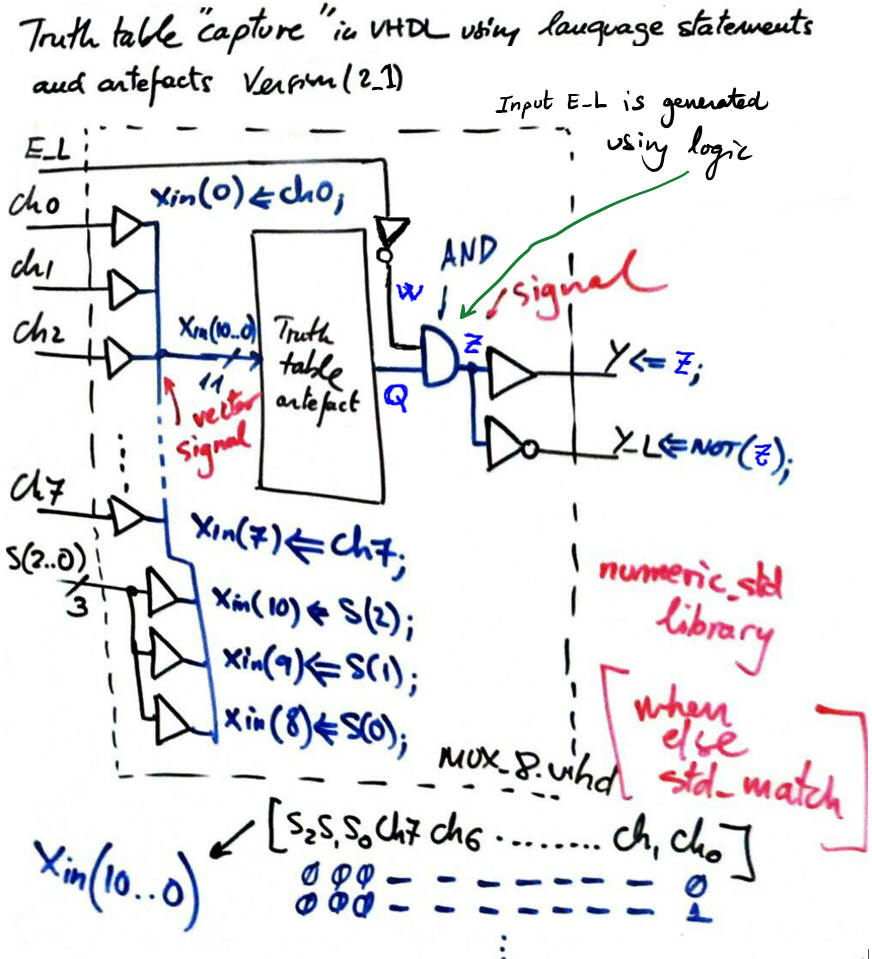 Truth table "capture" in VHDL using language statements
and artefacts Version (2_1)
Input E_L is generated
using logic
E_L
ch0
Xin(0) <= ch0;
ch1
AND
W
signal
ch2
Xin(10..0)
11
Truth
table
artefact
Z
Q
Y <= Z;
vector
signal
Y_L <= NOT(Z);
ch7
Xin(7) <= ch7;
S(2..0)
3
numeric_std
library
Xin(10) <= S(2);
Xin(9) <= S(1);
Xin(8) <= S(0);
when
else
std_match
MUX_8.vhd
[S2 S1 S0 ch7 ch6 ........ ch1 ch0]
Xin(10..0)
0 0 0 - - - - - - - 0
0 0 0 - - - - - - - 1